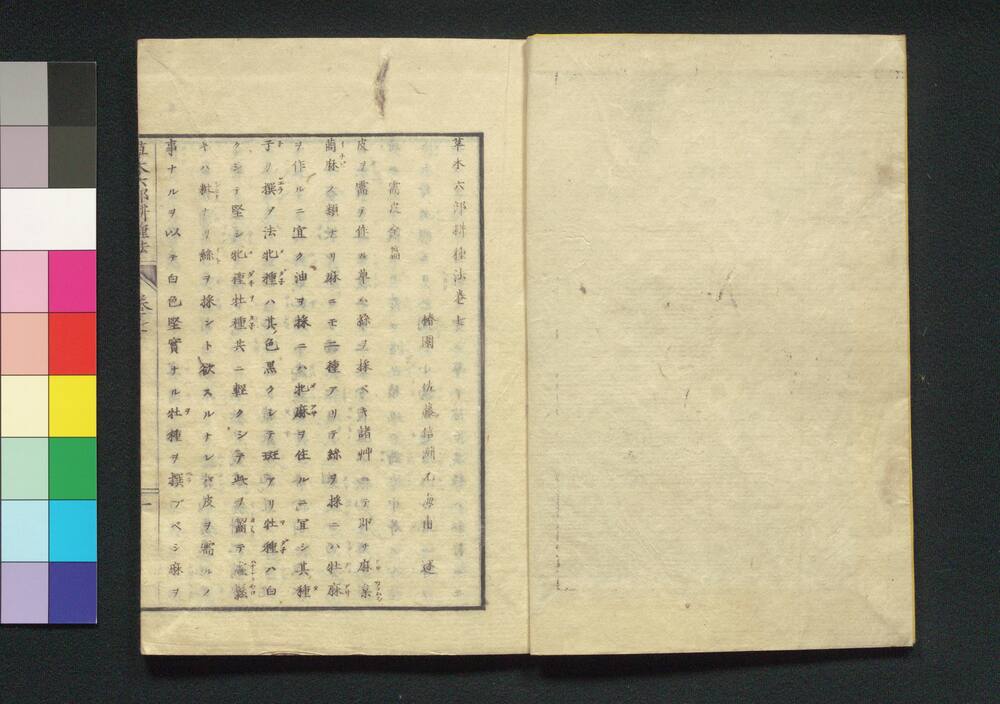 草木六部耕種法卷七
椿園 佐藤信淵 述
需皮全篇
皮ヲ需テ作ル草ハ絲ヲ採ベキ諸艸ニテ即チ麻
麻ノ類ナリ麻ニモ二種アリテ絲ヲ採ニハ牡麻
ヲ作ルニ宜ク油ヲ採ニハ牝麻ヲ作ルニ宜シ其種
子ヲ撰ブ法牝種ハ其色黒クシテ斑アリ牡種ハ白
クシテ堅シ牝種牡種共ニ輕クシテ此ヲ嚙テ
キハ粃ナリ絲ヲ採ント欲スルナレバ皮ヲ需ルノ
事ナルヲ以テ白色堅實ナル牡種ヲ撰ブベシ麻ヲ
草木六部耕種法 卷之七 一